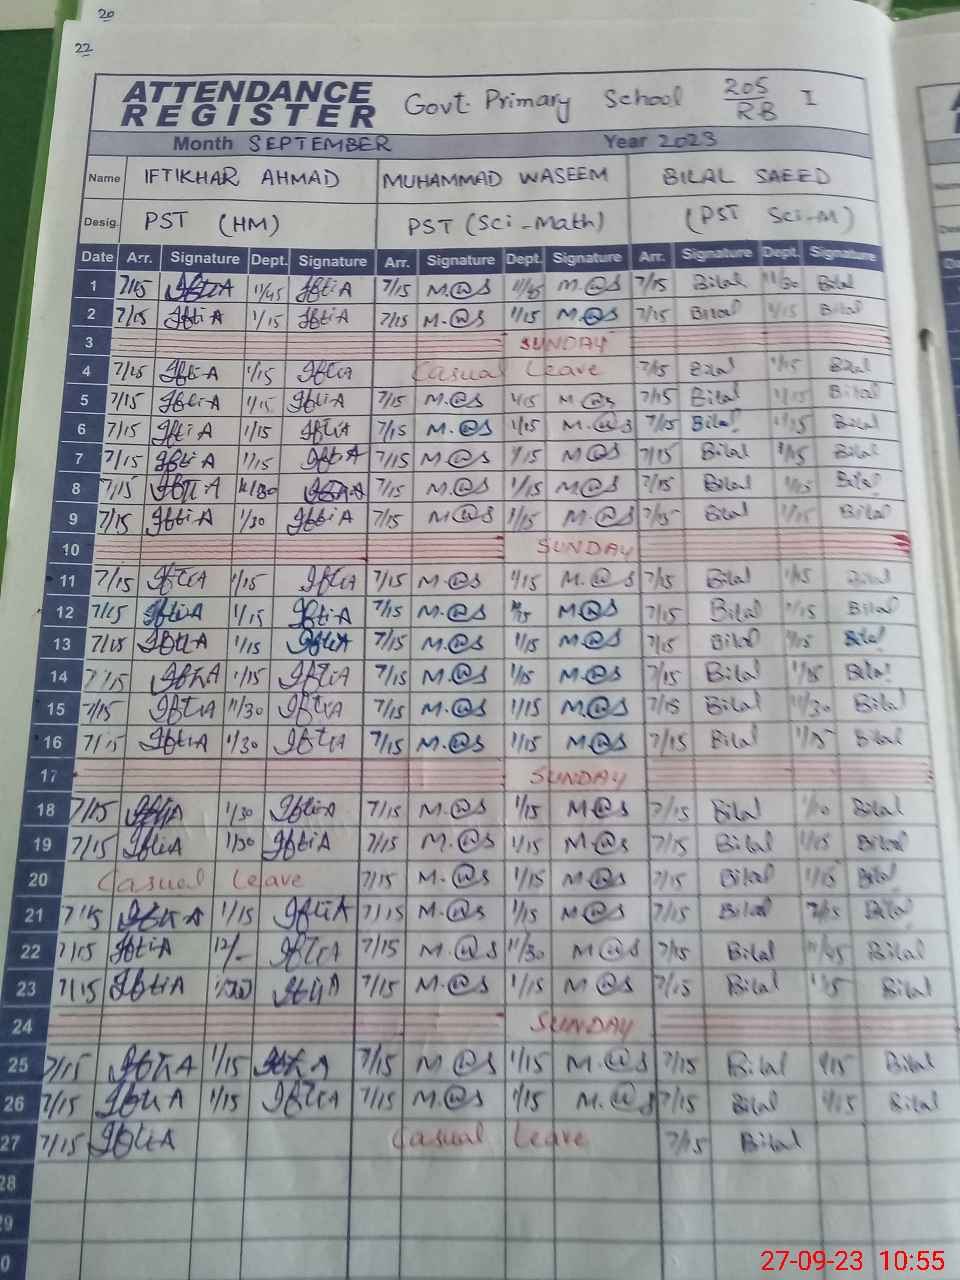 20
22
ATTENDANCE REGISTER Govt. Primary School 205/RB I
Month SEPTEMBER Year 2023
Name IFTIKHAR AHMAD MUHAMMAD WASEEM BILAL SAEED
Desig. PST (HM) PST (Sci-Math) (PST Sci-M)
Date Arr. Signature Dept. Signature Arr. Signature Dept. Signature Arr. Signature Dept. Signature
1 7/15 IftiA 11/45 IftiA 7/15 M.@S M.@S 7/15 Bilal 11/30 Bilal
2 7/15 IftiA 1/15 IftiA 7/15 M.@S 1/15 M.@S 7/15 Bilal 1/15 Bilal
3 SUNDAY
4 7/15 IftiA 1/15 IftiA Casual Leave 7/15 Bilal 1/15 Bilal
5 7/15 IftiA 1/15 IftiA 7/15 M.@S 1/15 M.@S 7/15 Bilal 1/15 Bilal
6 7/15 IftiA 1/15 IftiA 7/15 M.@S 1/15 M.@S 7/15 Bilal 1/15 Bilal
7 7/15 IftiA 1/15 IftiA 7/15 M.@S 1/15 M@S 7/15 Bilal 1/15 Bilal
8 7/15 IftiA IftiA 7/15 M.@S 1/15 M@S 7/15 Bilal 1/15 Bilal
9 7/15 IftiA 1/30 IftiA 7/15 M@S 1/15 M.@S 7/15 Bilal 1/15 Bilal
10 SUNDAY
11 7/15 IftiA 1/15 IftiA 7/15 M.@S 1/15 M.@S 7/15 Bilal 1/15 Bilal
12 7/15 IftiA 1/15 IftiA 7/15 M.@S M@S 7/15 Bilal 1/15 Bilal
13 7/15 IftiA 1/15 IftiA 7/15 M.@S 1/15 M.@S 7/15 Bilal 1/15 Bilal
14 7/15 IftiA 1/15 IftiA 7/15 M.@S 1/15 M.@S 7/15 Bilal 1/15 Bilal
15 7/15 IftiA 11/30 IftiA 7/15 M.@S 1/15 M.@S 7/15 Bilal 11/30 Bilal
16 7/15 IftiA 1/30 IftiA 7/15 M.@S 1/15 M@S 7/15 Bilal 1/15 Bilal
17 SUNDAY
18 7/15 IftiA 1/30 IftiA 7/15 M.@S 1/15 M@S 7/15 Bilal Bilal
19 7/15 IftiA 1/30 IftiA 7/15 M.@S 1/15 M@S 7/15 Bilal 1/15 Bilal
20 Casual Leave 7/15 M.@S 1/15 M@S 7/15 Bilal 1/15 Bilal
21 7/15 IftiA 1/15 IftiA 7/15 M.@S 1/15 M@S 7/15 Bilal Bilal
22 7/15 IftiA 12/- IftiA 7/15 M.@S 11/30 M@S 7/15 Bilal 11/45 Bilal
23 7/15 IftiA IftiA 7/15 M.@S 1/15 M@S 7/15 Bilal 1/15 Bilal
24 SUNDAY
25 7/15 IftiA 1/15 IftiA 7/15 M.@S 1/15 M.@S 7/15 Bilal 1/15 Bilal
26 7/15 IftiA 1/15 IftiA 7/15 M.@S 1/15 M.@S 7/15 Bilal 1/15 Bilal
27 7/15 IftiA Casual Leave 7/15 Bilal
28
27-09-23 10:55